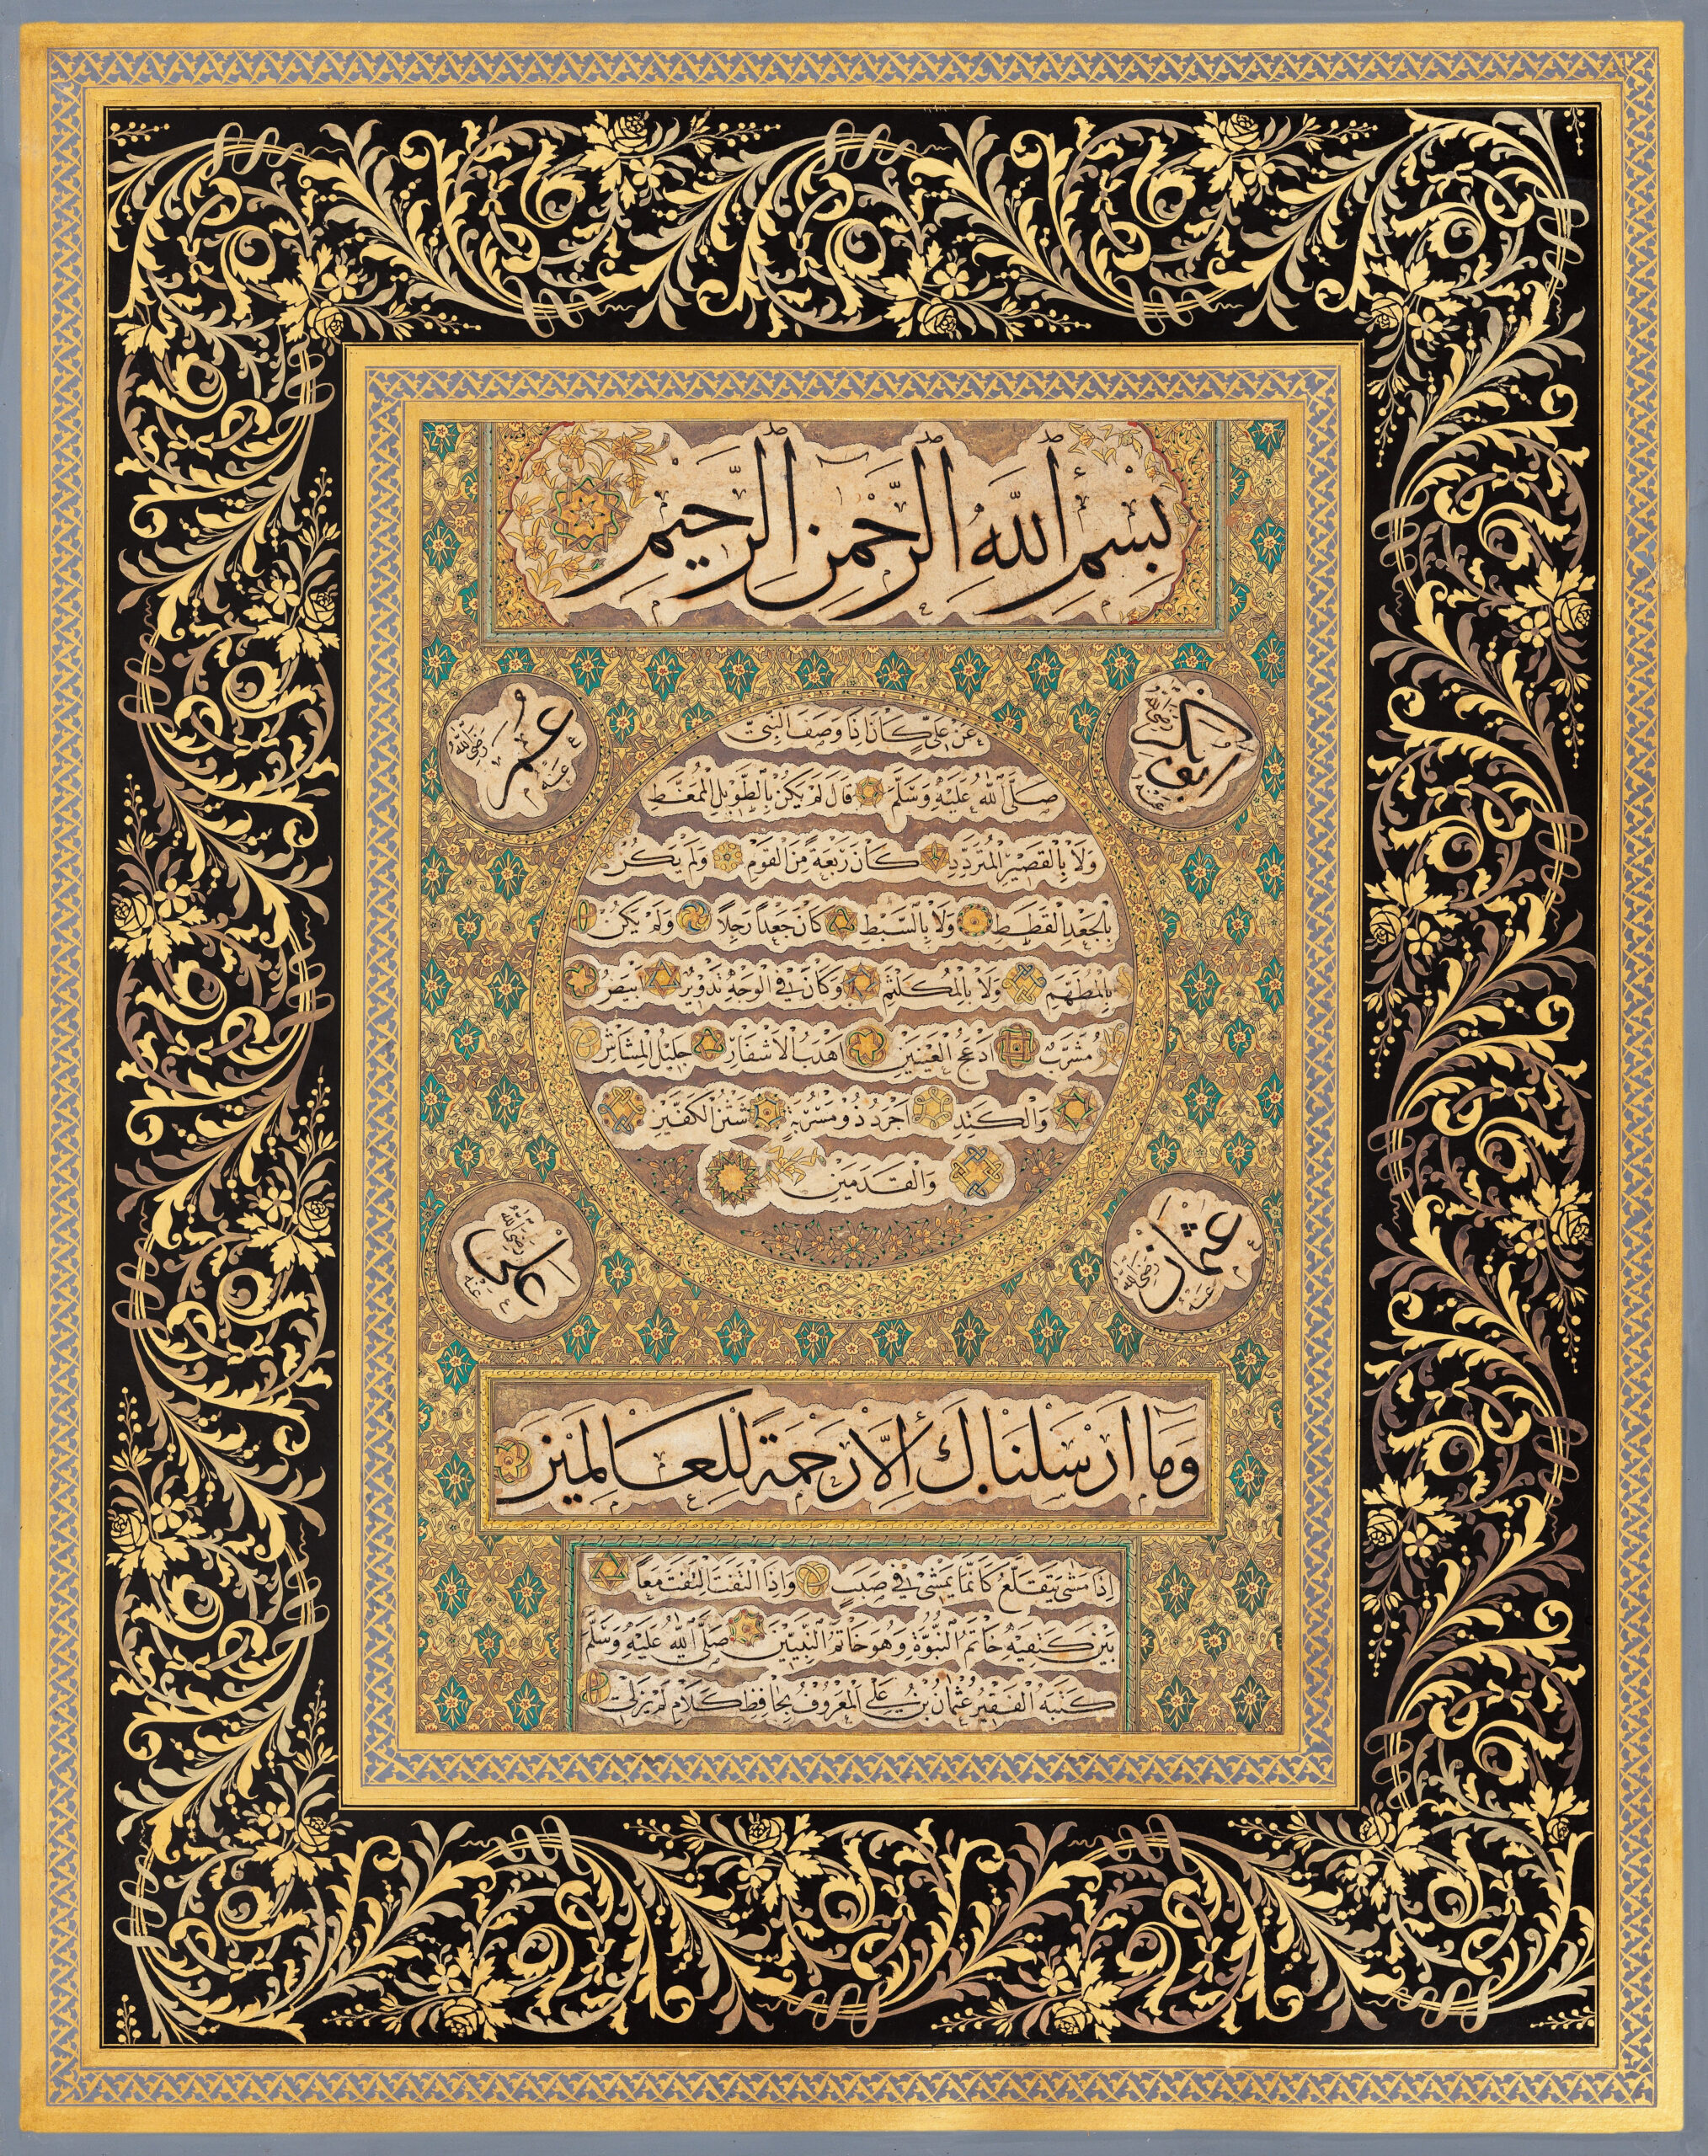 بِسْمِ اللهِ الرَّحْمٰنِ الرَّحِيمِ
ابو بكر رضي الله عنه
عمر رضي الله عنه
عَنْ عَلِيٍّ كَانَ اِذَا وَصَفَ النَّبِيَّ
صَلَّى اللهُ عَلَيْهِ وَسَلَّمَ قَالَ لَمْ يَكُنْ بِالطَّوِيلِ الْمُمَغَّطِ
وَلَا بِالْقَصِيرِ الْمُتَرَدِّدِ كَانَ رَبْعَةً مِنَ الْقَوْمِ وَلَمْ يَكُنْ
بِالْجَعْدِ الْقَطَطِ وَلَا بِالسَّبِطِ كَانَ جَعْدًا رَجِلًا وَلَمْ يَكُنْ
بِالْمُطَهَّمِ وَلَا بِالْمُكَلْثَمِ وَكَانَ فِي الْوَجْهِ تَدْوِيرٌ اَبْيَضُ
مُشْرَبٌ اَدْعَجُ الْعَيْنَيْنِ اَهْدَبُ الْاَشْفَارِ جَلِيلُ الْمُشَاشِ
وَالْكَتَدِ اَجْرَدُ ذُو مَسْرُبَةٍ شَثْنُ الْكَفَّيْنِ
وَالْقَدَمَيْنِ
عثمان رضي الله عنه
علي رضي الله عنه
وَمَا اَرْسَلْنَاكَ اِلَّا رَحْمَةً لِلْعَالَمِينَ
اِذَا مَشَى يَتَقَلَّعُ كَاَنَّمَا يَمْشِي فِي صَبَبٍ وَاِذَا الْتَفَتَ الْتَفَتَ مَعًا
بَيْنَ كَتِفَيْهِ خَاتَمُ النُّبُوَّةِ وَهُوَ خَاتَمُ النَّبِيِّينَ صَلَّى اللهُ عَلَيْهِ وَسَلَّمَ
كَتَبَهُ الْفَقِيرُ عُثْمَانُ بْنُ عَلِي الْمَعْرُوفُ بِحَافِظِ كَلَامِ لَمْ يَزَلْ